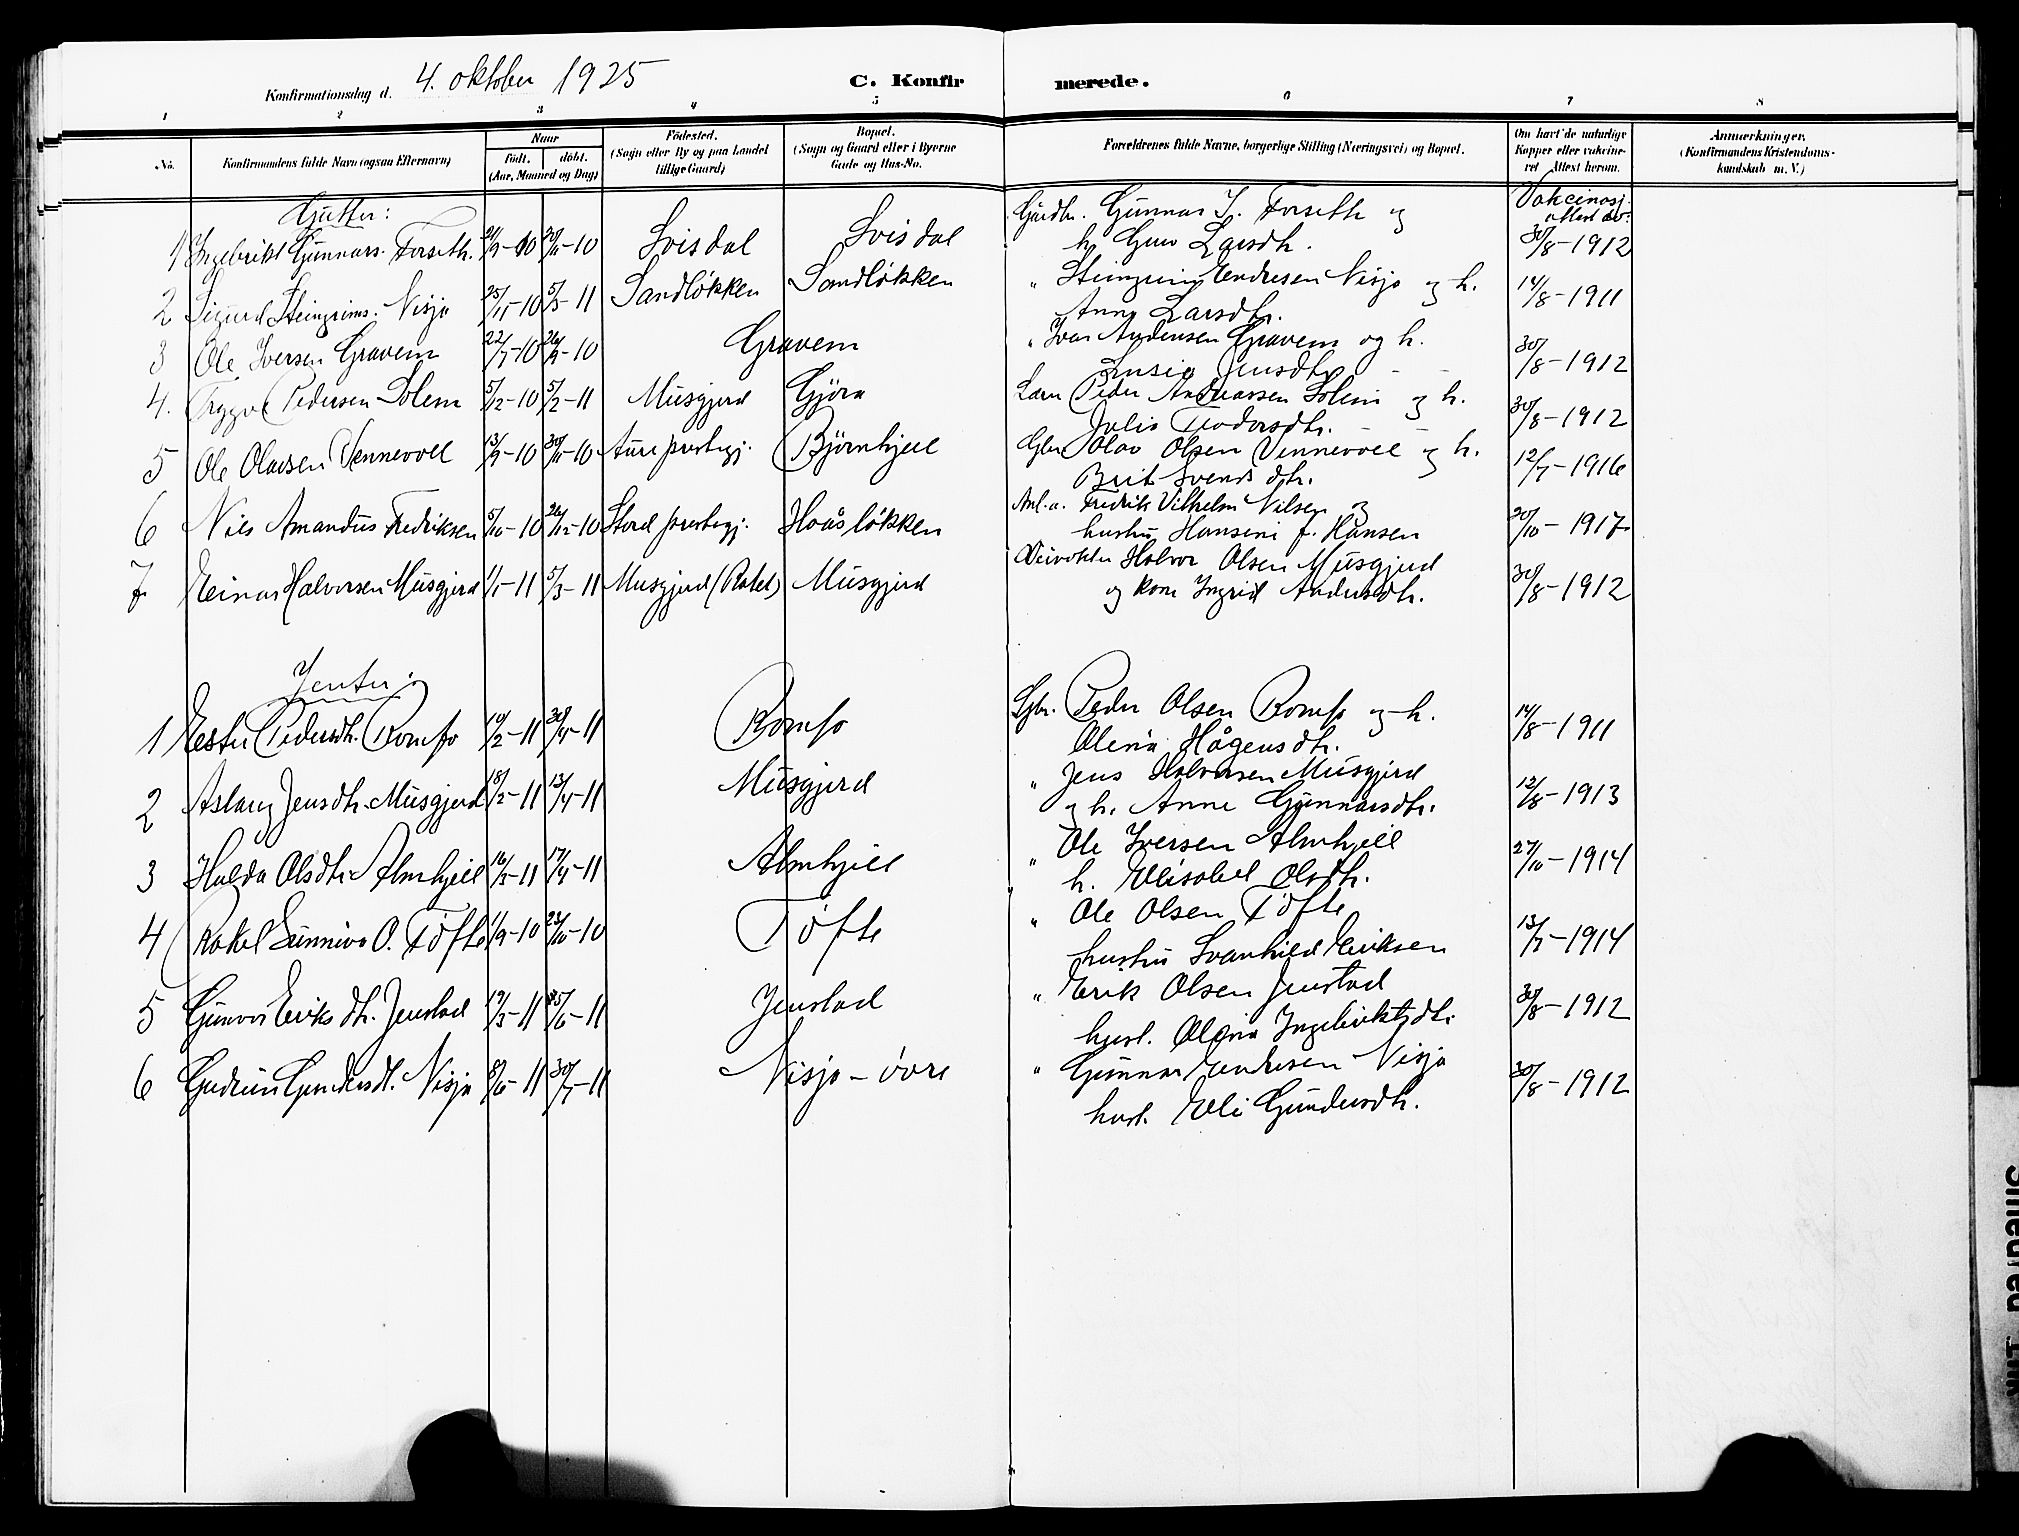 Konfirmationsdag d. 4. oktober 1925 C. Konfir merede.
1 2 3 4 5 6 7 8
No. Konfirmandens fulde Navn (ogsaa Efternavn) Naar født. døbt. (Aar, Maaned og Dag) Fødested. (Sogn eller By og paa Landet tillige Gaard) Bopæl. (Sogn og Gaard eller i Byerne Gade og Hus-No. Forældrenes fulde Navne, borgerlige Stilling (Næringsvei) og Bopæl. Om havt de naturlige Kopper eller vakcineret. Attest herom. Anmærkninger. (Konfirmandens Kristendomskundskab m. V.)
Gutter: Vakcinasj. attest av:
1 Ingebrikt Gunnars. Forseth. 21/9-10 28/11-10 Svisdal Svisdal Gjurdbr. Gunnar I. Forseth og
h. Guro Larsdtr. 30/8-1912
2 Sigurd Steingrims. Nisja 25/11-10 5/3-11 Sandløkken Sandløkken " Steingrim Endresen Nisja og h.
Anne Larsdtr. 14/8-1911
3 Ole Iversen Gravem 22/7-10 26/9-10 Gravem " Ivar Andersen Gravem og h.
Jensdtr. - - 30/8-1912
4. Trygve Pedersen Solem 5/12-10 5/2-11 Musgjerd Gjøra Peder Andreassen Solem og h.
Julie Teodorsdtr. - - 30/8-1912
5 Ole Olavsen Vennevoll 13/9-10 30/11-10 Aure prestegj. Bjørnhjell Gbr. Olav Olsen Vennevoll og h.
Brit Svendsdtr. 12/7-1916
6 Nils Amandus Fredriksen 5/10-10 26/12-10 Stord prestegj. Hoåsløkken Anl.a. Fredrik Vilhelm Nilsen og
hustru Hansine f. Hansen 20/10-1917
7 Einar Halvorsen Musgjerd 1/1-11 5/3-11 Musgjerd (Raket) Musgjerd Veivokter Halvor Olsen Musgjerd
og kone Ingrid Andersdtr. 30/8-1912
Jenter:
1 Ester Pedersdtr. Romfo 10/2-11 30/4-11 Romfo Gbr. Peder Olsen Romfo og h.
Olena Hågensdtr. 14/8-1911
2 Aslaug Jensdtr. Musgjerd 18/2-11 13/4-11 Musgjerd " Jens Halvorsen Musgjerd
og h. Anne Gunnarsdtr. 12/8-1913
3 Hulda Olsdtr. Almhjell 16/3-11 17/4-11 Almhjell " Ole Iversen Almhjell
h. Elisabet Olsdtr. 27/10-1914
4 Rakel Sunniva O. Tøfte 1/9-10 23/10-10 Tøfte " Ole Olsen Tøfte
hustru Svanhild Eriksen 13/7-1914
5 Gunvor Eriksdtr. Jenstad 19/3-11 25/6-11 Jenstad " Erik Olsen Jenstad
hust. Olena Ingebriktsdtr. 30/8-1912
6 Gudrun Nisja 8/6-11 30/7-11 Nisja - övre " Gunnar Endresen Nisja
hust. Eli Gundersdtr. 30/8-1912